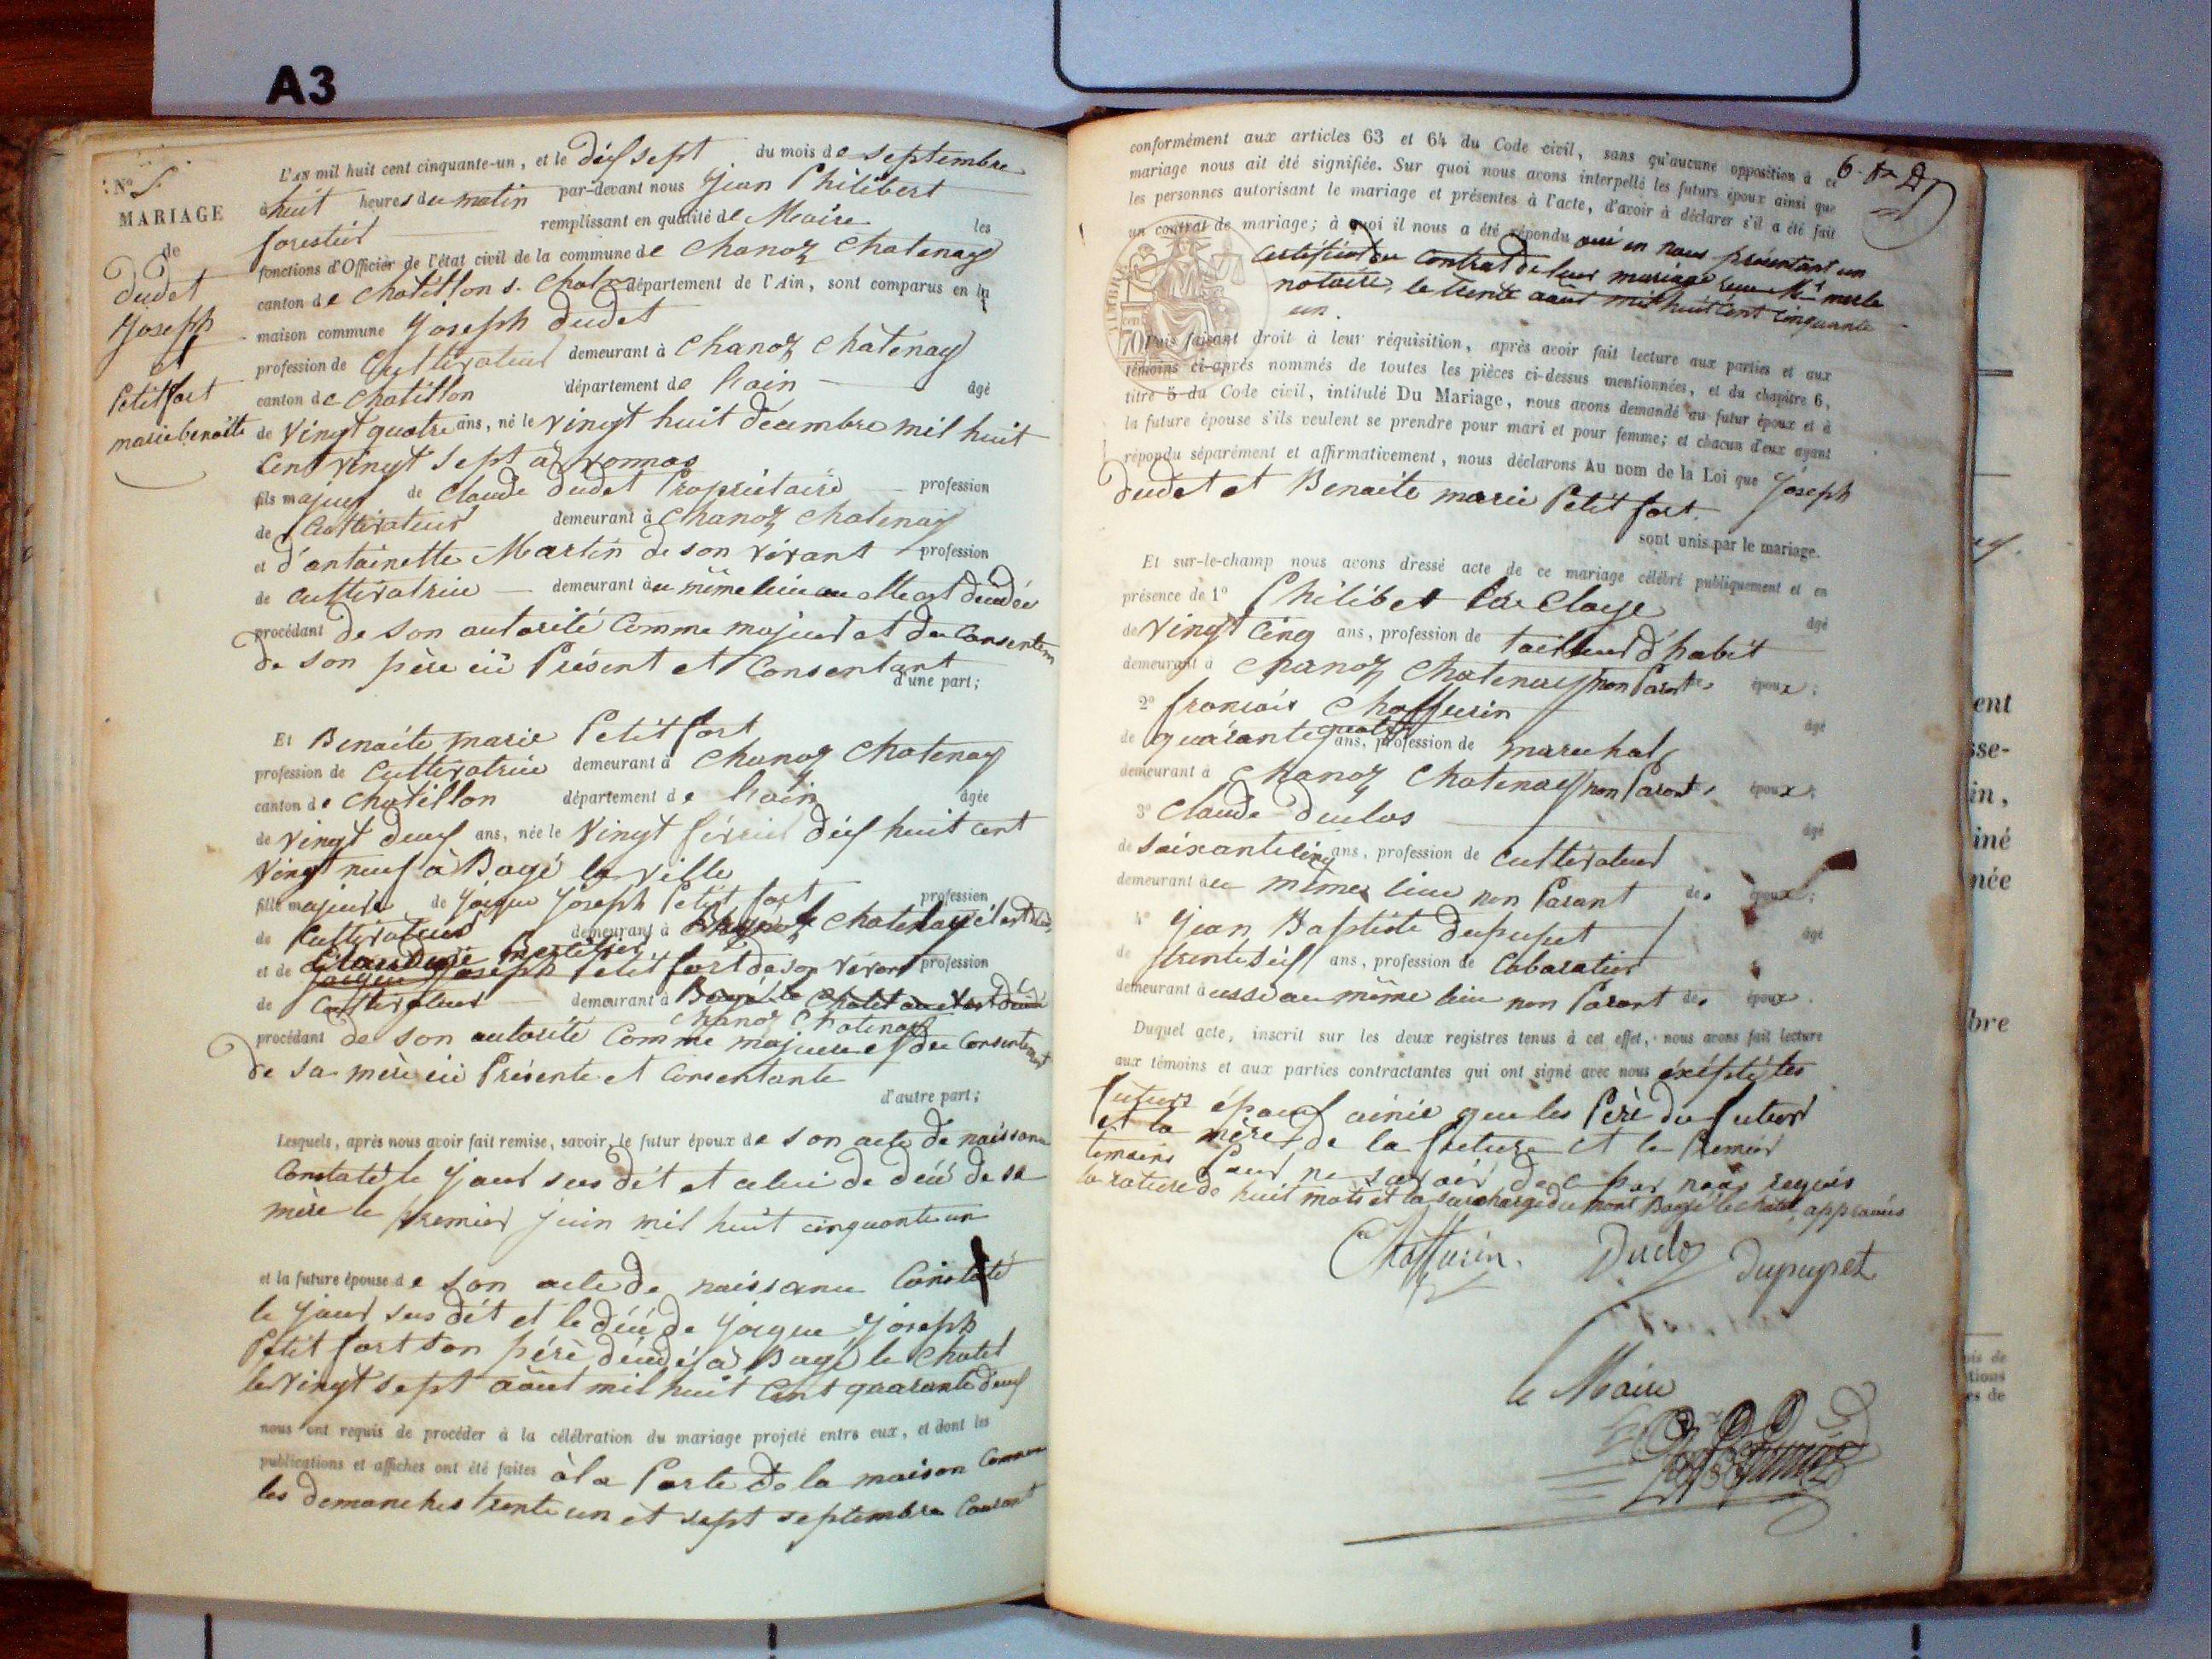 A3
N° 5
MARIAGE
de
Dudet
Joseph
et
Petitfort
marie benoite
L'AN mil huit cent cinquante-un, et le dix sept du mois de septembre
à huit heures du matin par-devant nous Jean Philibert
forestier remplissant en qualité de Maire les
fonctions d'Officier de l'état civil de la commune de Chanoz Chatenay
canton de Chatillon s. Chal département de l'Ain, sont comparus en la
maison commune Joseph Dudet
profession de Cultivateur demeurant à Chanoz Chatenay
canton de Chatillon département de L'ain âgé
de vingt quatre ans, né le vingt huit décembre mil huit
cent vingt sept à vonnas
fils majeur de Claude Dudet Propriétaire profession
de Cultivateur demeurant à Chanoz Chatenay
et d'antoinette Martin de son vivant profession
de cultivatrice demeurant à au même lieu ou elle est décédée
procédant de son autorité Comme majeur et du Consentem
de son père ici Présent et Consentant
d'une part;
Et Benoite marie Petit fort
profession de Cultivatrice demeurant à Chanoz Chatenay
canton de Chatillon département de L'ain âgée
de vingt deux ans, née le vingt février dix huit cent
vingt neuf à Bagé la ville
fille majeure de Jacque Joseph Petit fort profession
de Cultivateur demeurant à Bagé le Chatel
et de Jacque Joseph Petit fort de son vivant profession
de Cultivateur demeurant à Bagé le Chatel ou il est décédé
Chanoz Chatenay
procédant de son autorité Comme majeure et du Consentement
de sa mère ici Présente et Consentante
d'autre part;
Lesquels, après nous avoir fait remise, savoir, le futur époux de son acte de naissance
Constaté le jour sus dit et celui de décé de sa
mère le premier juin mil huit cinquante un
et la future épouse de son acte de naissance Constaté
le jour sus dit et le décé de Jacque Joseph
Petit fort son père décédé à Bagé le Chatel
le vingt sept août mil huit cent quarante deux
nous ont requis de procéder à la célébration du mariage projeté entre eux, et dont les
publications et affiches ont été faites à la Porte de la maison Commune
les demanches trente un et sept septembre Courant
conformément aux articles 63 et 64 du Code civil, sans qu'aucune opposition à ce
mariage nous ait été signifiée. Sur quoi nous avons interpellé les futurs époux ainsi que
les personnes autorisant le mariage et présentes à l'acte, d'avoir à déclarer s'il a été fait
un contrat de mariage; à quoi il nous a été répondu oui en nous présentant un
certificat du Contrat de leur mariage reçu Me merle
notaire, le trente août mil huit cent cinquante
un.
Puis faisant droit à leur réquisition, après avoir fait lecture aux parties et aux
témoins ci-après nommés de toutes les pièces ci-dessus mentionnées, et du chapitre 6,
titre 5 du Code civil, intitulé Du Mariage, nous avons demandé au futur époux et à
la future épouse s'ils veulent se prendre pour mari et pour femme; et chacun d'eux ayant
répondu séparément et affirmativement, nous déclarons Au nom de la Loi que Joseph
Dudet et Benoite marie Petit fort.
sont unis par le mariage.
Et sur-le-champ nous avons dressé acte de ce mariage célébré publiquement et en
présence de 1° Philibet âgé
de vingt cinq ans, profession de tailleur d'habit
demeurant à Chanoz Chatenay non Parent des époux;
2° francois Chaffurin âgé
de quarante quatre ans, profession de marechal
demeurant à Chanoz Chatenay non Parent époux;
3° Claude Duclos âgé
de soixante cinq ans, profession de cultivateur
demeurant à au même lieu non Parant des époux;
4° Jean Baptiste Dupupet âgé
de trente six ans, profession de Cabaratier
demeurant à ussi au même lieu non Parant des époux.
Duquel acte, inscrit sur les deux registres tenus à cet effet, nous avons fait lecture
aux témoins et aux parties contractantes qui ont signé avec nous éxéptés les
futurs époux ainsi que les Père du futur
et la mère de la future et le Premier
temoins Pour ne savoir de ce par nous requis
la rature de huit mots et la surcharge du mont Bagé le Chatel approuvés
Chaffurin. Duclos Dupupet
le Maire